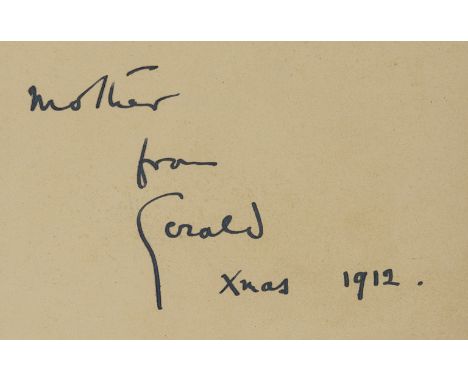 Mother
from
Gerald
Xmas 1912.